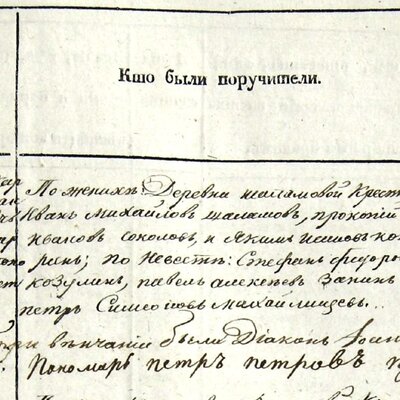 Кто были поручители.
По женихѣ: Деревни шаламовой Крест
Иванъ Михайловъ шаламовъ, прокопiй
Ивановъ соколовъ, и Якимъ
ринъ; по Невестѣ: Стефанъ федоро
козулинъ, павелъ алексѣевъ Запинъ
петръ Симеоновъ михайлищевъ..
При вѣнчанiи были Дiаконъ Iоан
Пономарь петръ петровъ